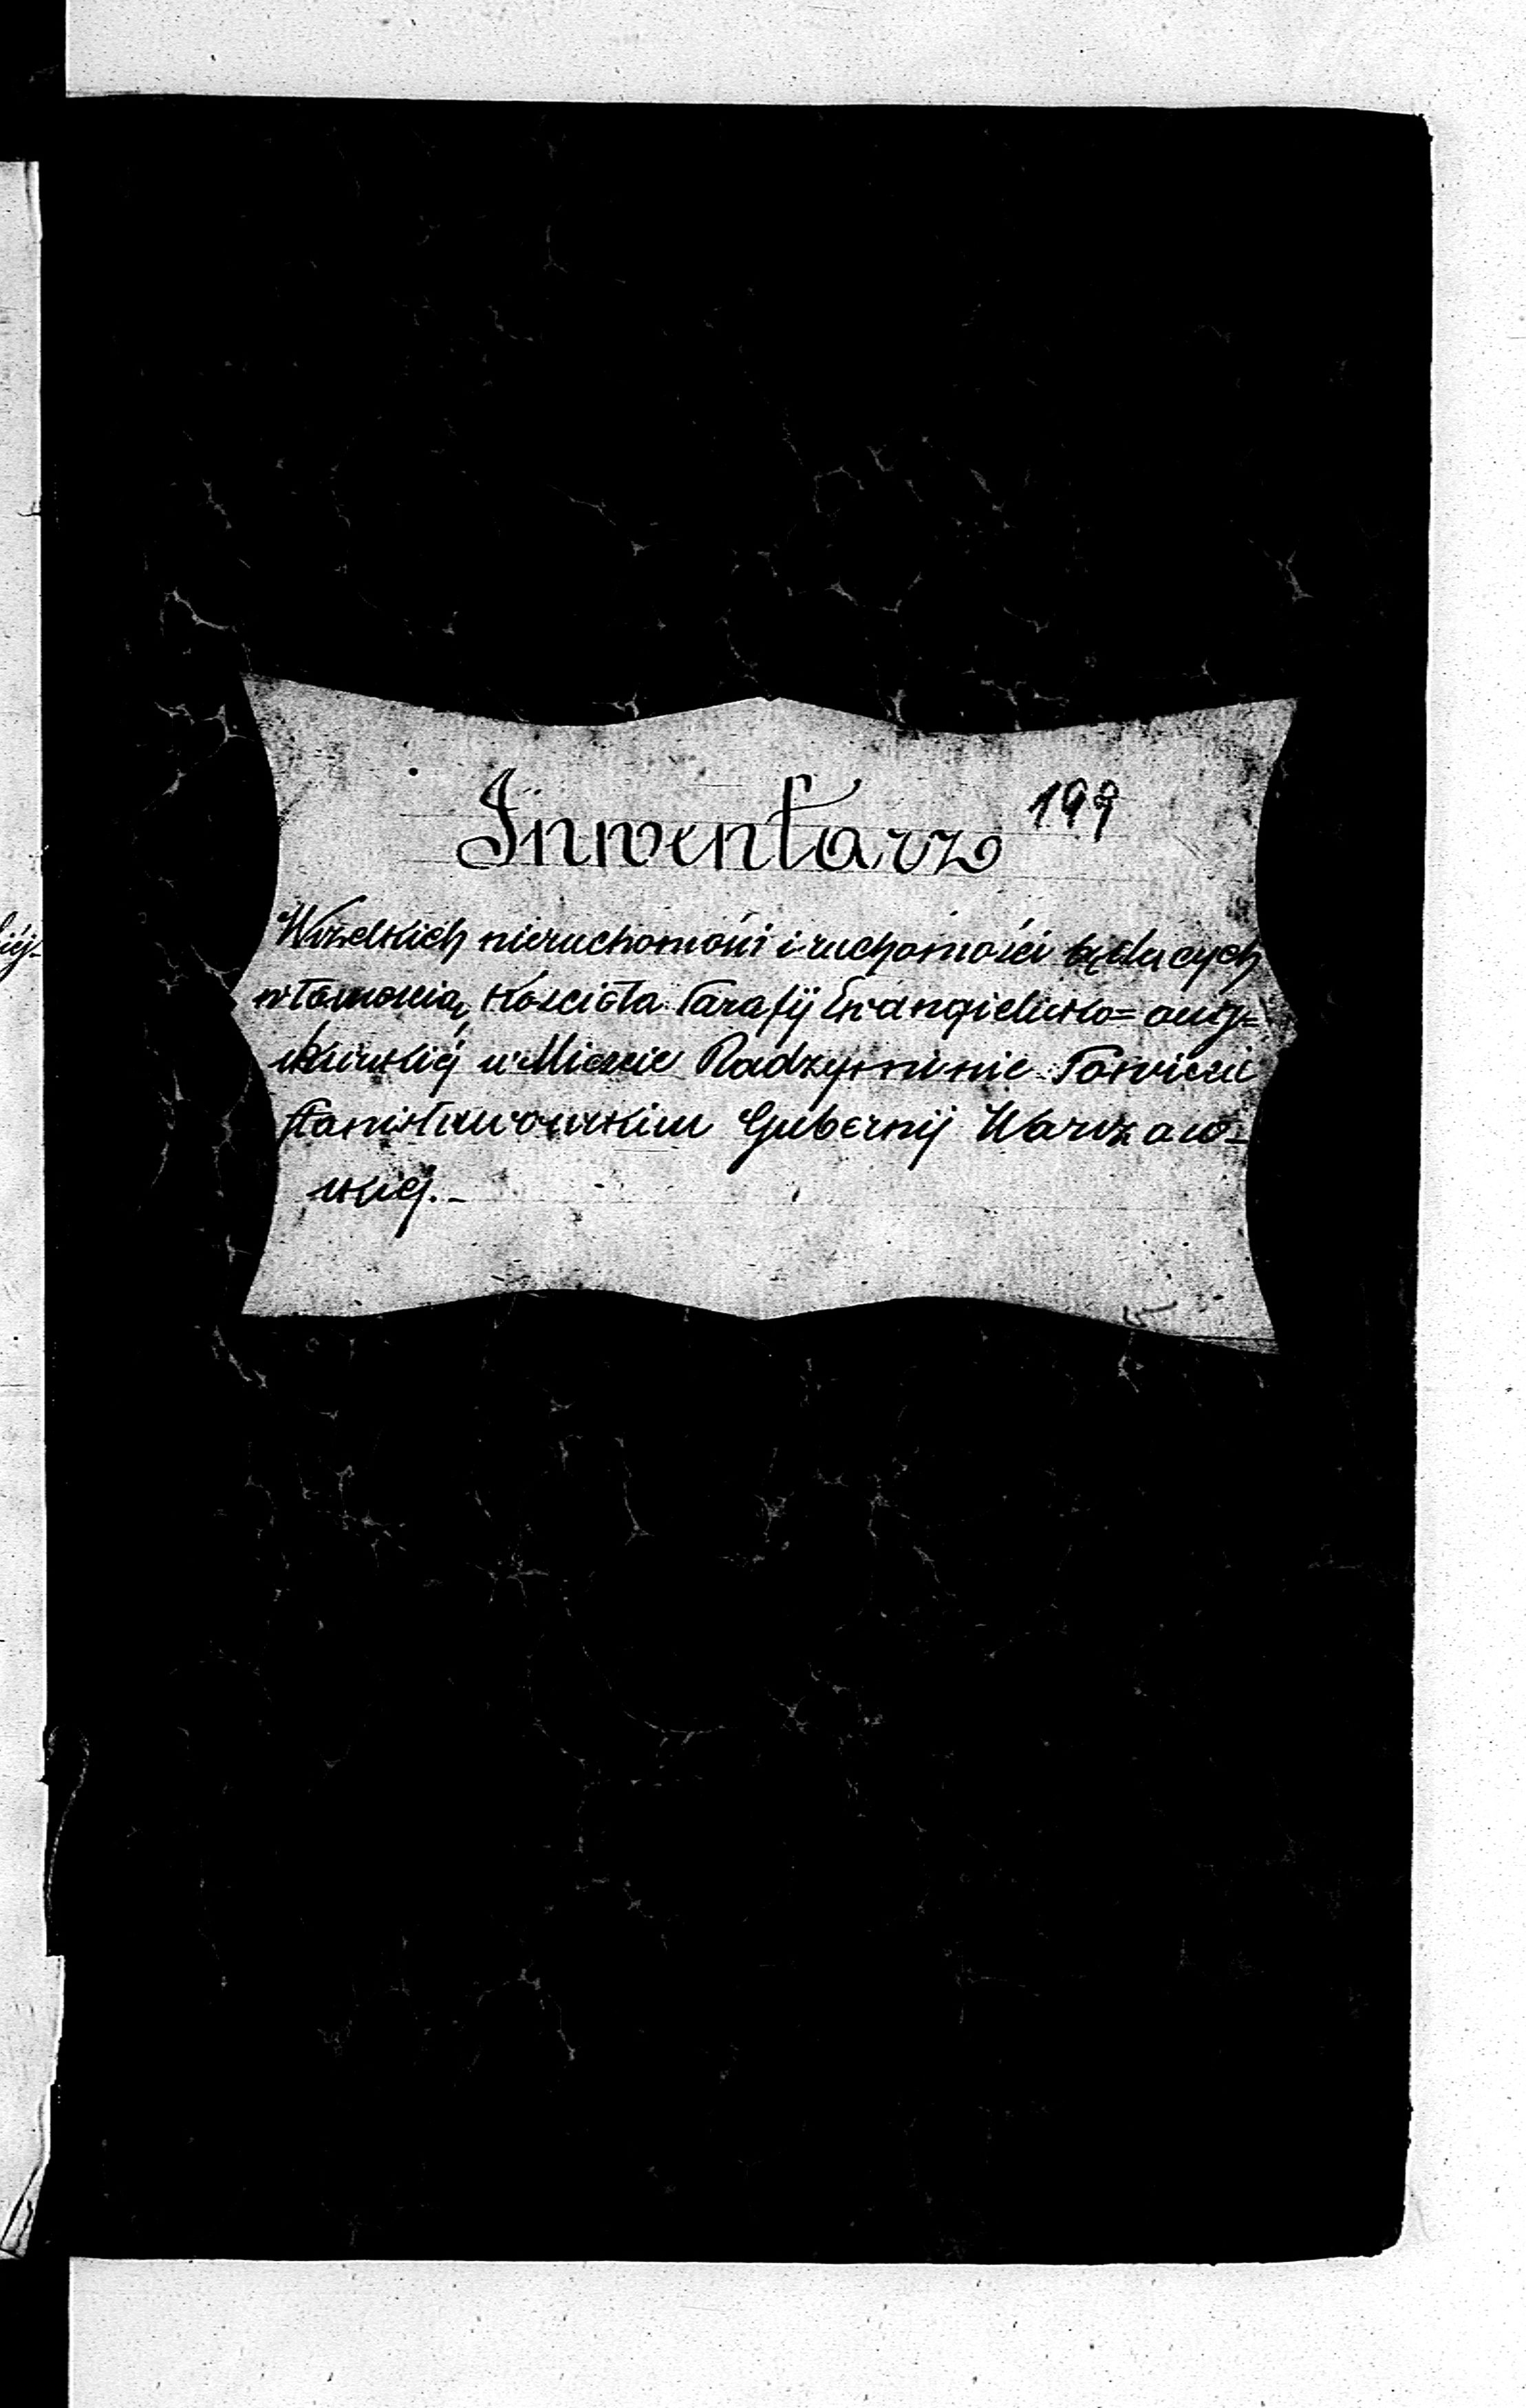 Inwentarz 199
Wszelkich nieruchomości i ruchomości będących
własnością Kościoła Parafij Ewangielicko= augs=
burskiéj w Mieście Radzyminie Powiecie
Stanisławowskim Gubernij Warszaw-
skiéj.-